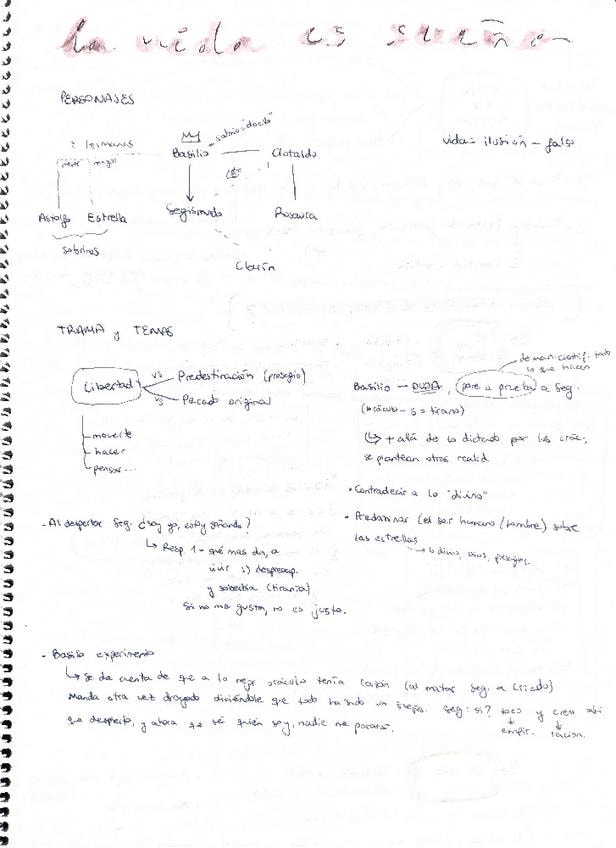 La vida es sueño
PERSONAJES
2 hermanas
menor mayor
Basilio — sabio = "docto"
Clotaldo
vida = ilusión - falso
Astolfo Estrella
Segismundo
Rosaura
sobrinos
Clarín
TRAMA y TEMAS
Libertad
vs Predestinación (presagio)
vs Pecado original
- moverte
- hacer
- pensar...
lo que hacen
Basilio — DUDA, pone a prueba a Seg.
(oráculo - S = tirano)
↳ + allá de lo dictado por los
se plantean otras realid.
• Contradecir a lo "divino"
• Predominar (el ser humano / hombre) sobre
las estrellas
→ lo divino, presagios.
- Al despertar Seg. ¿soy yo, estoy soñando?
↳ Resp. 1 - qué mas da, a
vivir :) despreocup.
y soberbia (tiranía)
Si no me gusta, no es justo.
- Basilio experimento
↳ se da cuenta de que a lo mejor oráculo tenía razón (al matar Seg. a criado)
Manda otra vez drogado diciéndole que todo ha sido un Seg: si? toco y creo
que despierto, y ahora que sé quién soy, nadie me parará.
empír. racion.